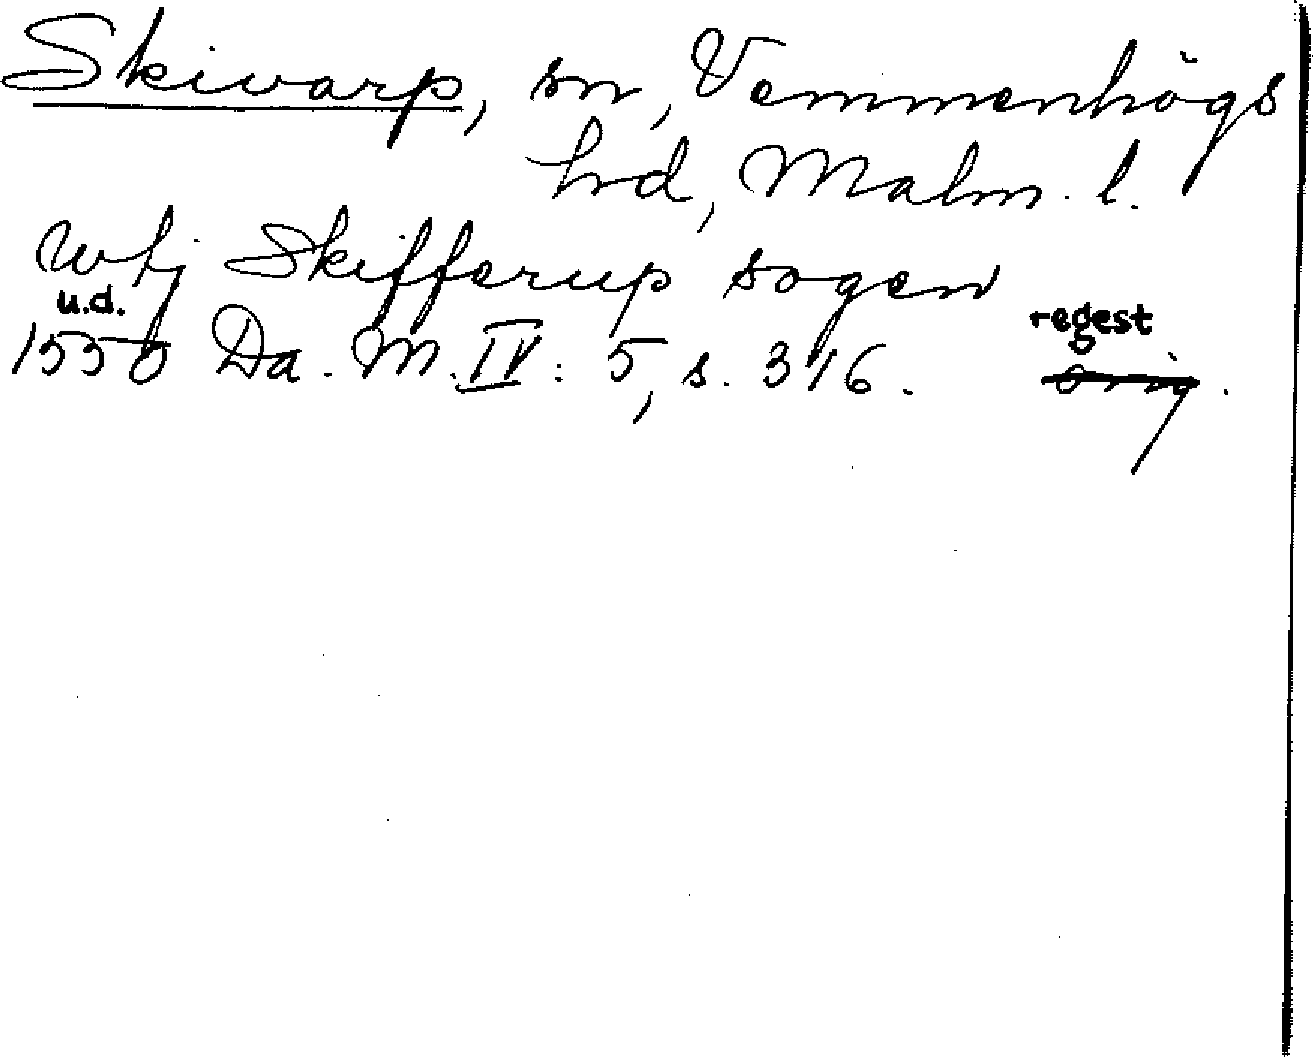 Skivarp, sn, Vemmenhögs
hrd, Malm. l.
wtj Skifferup sogen
u.d.
1550 Da. M. IV: 5, s. 316. regest
orig.